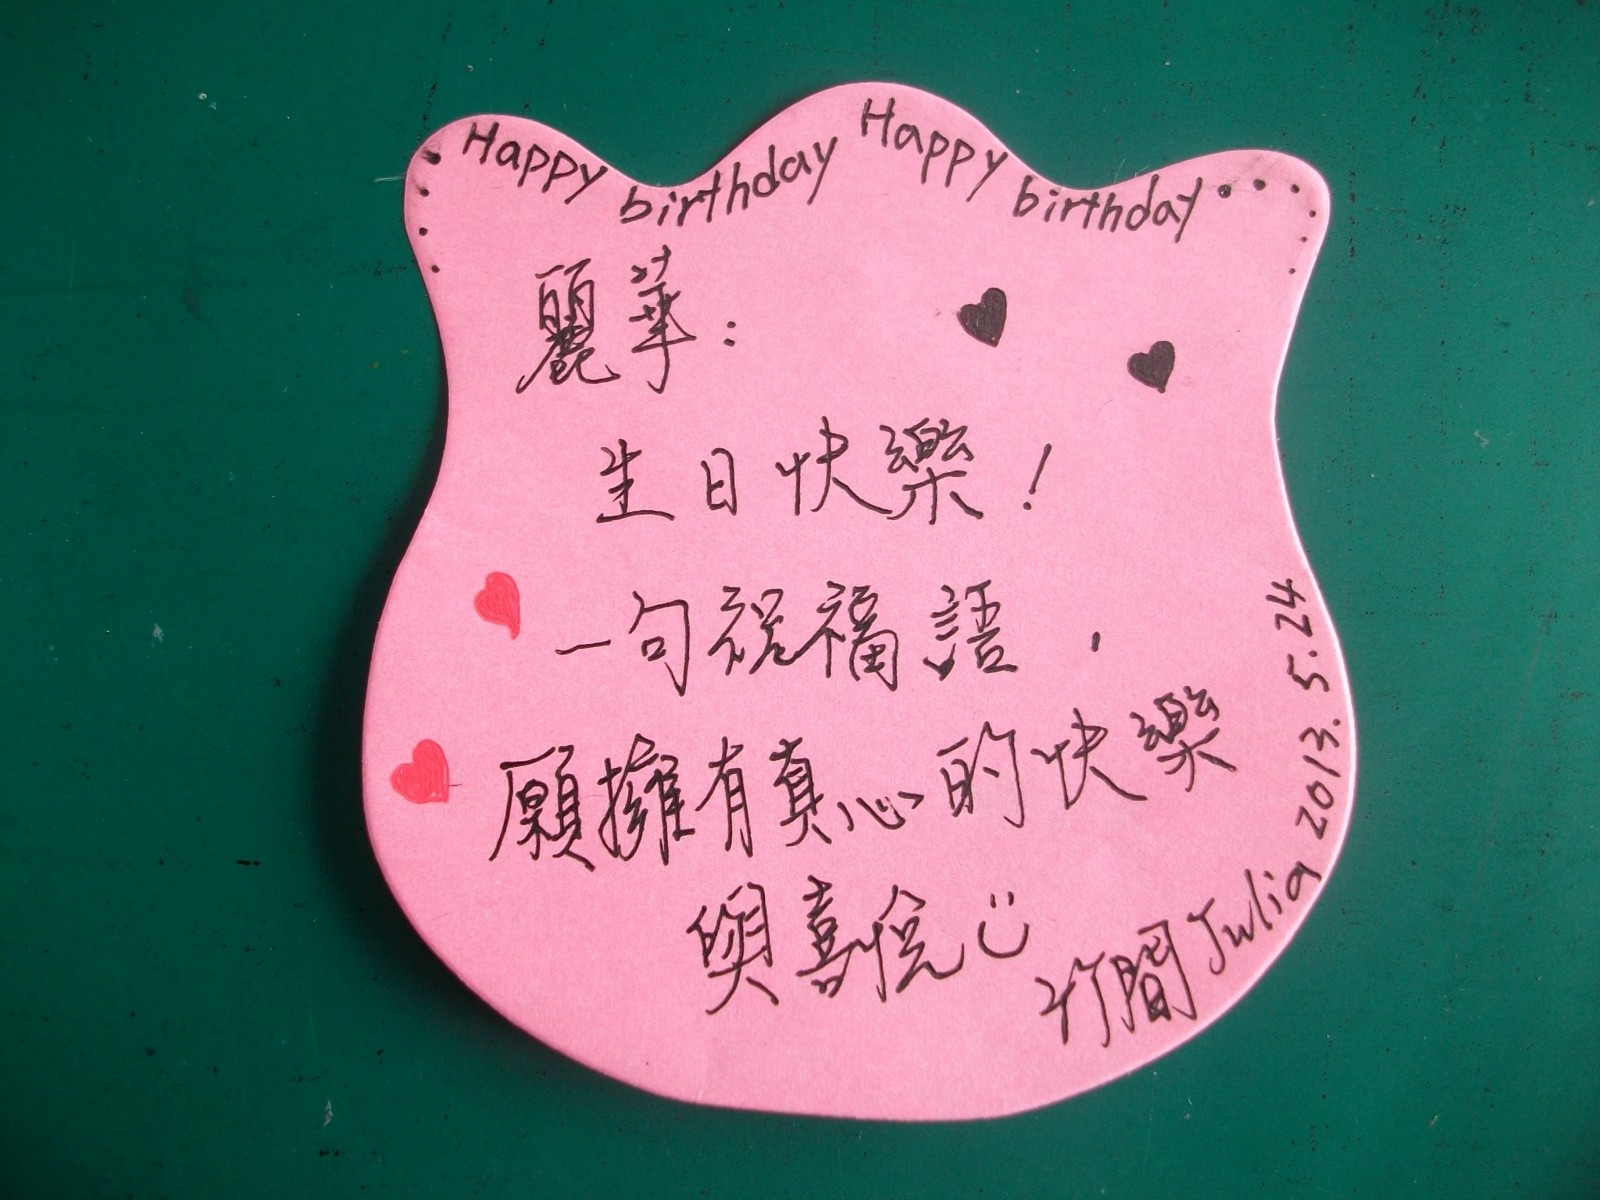 Happy birthday Happy birthday
麗華：
生日快樂！
一句祝福語，
願擁有真心的快樂
與喜悅
竹間 Julia 2013.5.24